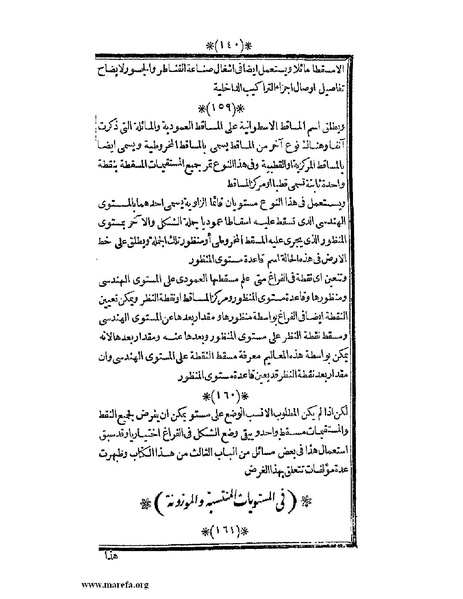 *(١٤٠)*
الا مسقطا مائلا ويستعمل ايضا فى اشغال صناعة القناطر والجسور لايضاح
تفاصيل اوصال اجزاء التراكيب الداخلية
*(١٥٩)*
ويطلق اسم المساقط الاسطوانية على المساقط العمودية والمائلة التى ذكرت
آنفا وهناك نوع آخر من المساقط يسمى بالمساقط المخروطية ويسمى ايضا
بالمساقط المركزية او القطبية وفى هذا النوع تمر جميع المستقيمات المسقطة بنقطة
واحدة ثابتة تسمى قطبا او مركز المساقط
ويستعمل فى هذا النوع مستويان قائما الزاوية يسمى احدهما بالمستوى
الهندسى الذى تسقط عليه اسقاطا عموديا جملة الشكل والآخر بمستوى
المنظور الذى يجرى عليه المسقط المخروطى أو منظور تلك الجملة ويطلق على خط
الارض فى هذه الحالة اسم قاعدة مستوى المنظور
وتتعين اى نقطة فى الفراغ متى علم مسقطها العمودى على المستوى الهندسى
ومنظورها وقاعدة مستوى المنظور ومركز المساقط او نقطة النظر ويمكن تعيين
النقطة ايضا فى الفراغ بواسطة منظورها ومقدار بعدها عن المستوى الهندسى
ومسقط نقطة النظر على مستوى المنظور وبعدها عنه ومقدار بعدها لانه
يمكن بواسطة هذه المعاليم معرفة مسقط النقطة على المستوى الهندسى وان
مقدار بعد نقطة النظر قد يعين قاعدة مستوى المنظور
*(١٦٠)*
لكن اذا لم يكن المطلوب الا نسب الوضع على مستو يمكن ان يفرض لجميع النقط
والمستقيمات مسقط واحد ويبقى وضع الشكل فى الفراغ اختياريا وقد سبق
استعمال هذا فى بعض مسائل من الباب الثالث من هذا الكتاب وظهرت
عدة مؤلفات تتعلق بهذا الغرض
*(فى المستويات المنتسبة والموزونة)*
*(١٦١)*
هذا
www.marefa.org